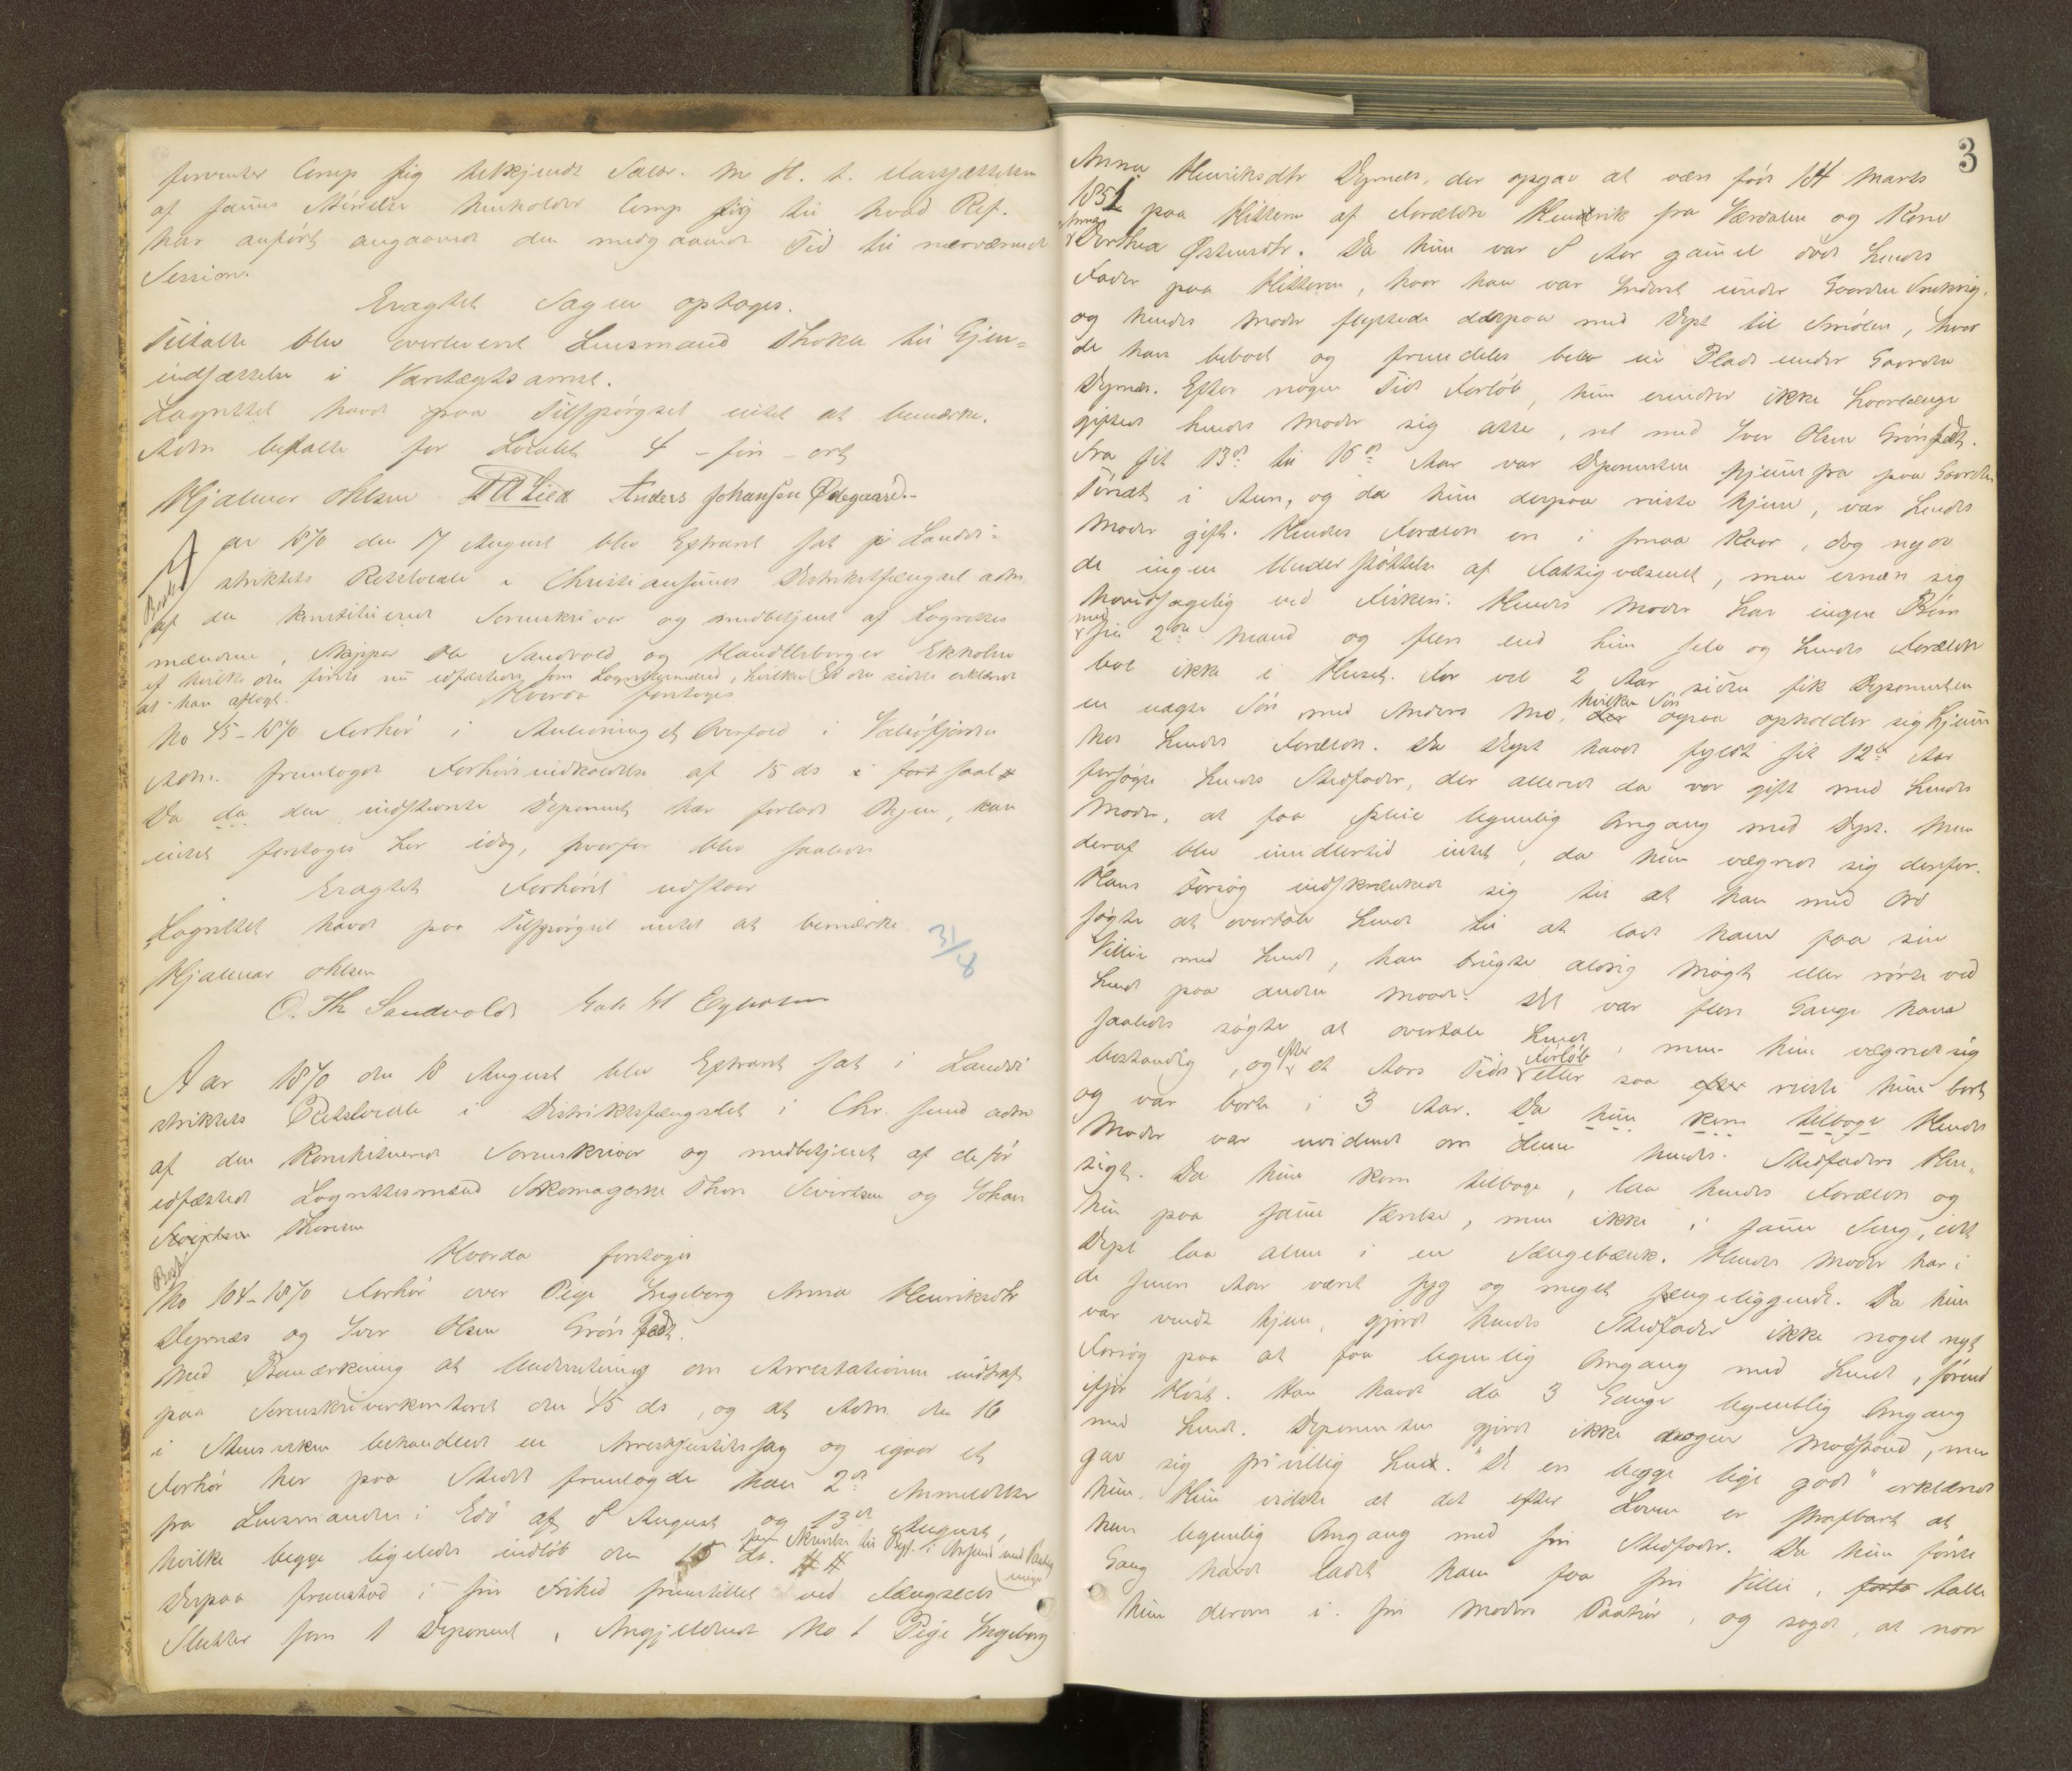 forventer Comp sig tilkjendt Salær. M. H. t. Fastsættelsen
af samme Størrelse henholder Comp sig til hvad Ref.
har anført angaaende den medgaaede Tid til nærværende
Session.
Eragtet Sagen optages.
Tiltalte blev overleveret Lensmand Thoke til Gjen-
indsættelse i Varetægtsarrest.
Lagrettet havde paa Tilspørgsel intet at bemærke.
Adm betalte for Localet 4 - fire - ort
Hjalmar Ohlsen Anders Johansen Ødegaard.-
Aar 1870 den 17 August blev Extraret sat på Landdi-
striktets Retslocale i Christiansunds Distriktsfængsel adm.
Besk
af den konstituerede Sorenskriver og medbetjent af Lagrettes
mændene, Skipper Ole Sandvold og Handelsborger Ekholm
af hvilke den første nu edfæstedes som Lagrettesmand, hvilken Ed den sidste erklærede
at have aflagt.
Hvorda foretoges
No 45-1870 Forhør i Anledning et Overfald i
Adm. fremlagde Forhørsindkaldelse af 15 ds
Da da den indstevnte Deponent har forladt Byen, kan
intet foretages her idag, hvorfor blev saaledes
Eragtet Forhøret udstaar
Lagrettet havde paa Tilspørgsel intet at bemærke.
31/8
Hjalmar Ohlsen
O. Th Sandvold
Aar 1870 den 18 August blev Extraret sat i Landdi
striktets Retslocale i Distriktsfængslet i Chr. sund adm
af den Konstituerede Sorenskriver og medbetjent af de før
edfæstede Lagrettesmænd Skomagerne Thor Sivertsen og Johan
Thoresen
Hvorda foretoges
Besk
No 104-1870 Forhør over Pige Ingeborg Anna Henriksdtr
Dyrnæs og Iver Olsen Grønfædt.
Med Bemærkning at Underretning om Arrestationen indtraf
paa Sorenskriverkontoret den 15 ds, og at Adm den 16
i behandlede en Arrestjustitssag og igaar et
Forhør her paa Stedet fremlagde han 2de Anmeldelser
fra Lensmanden i Edø af 8 August og 13de August,
hvilke begge ligeledes indløb den 15 ds.
Derpaa fremstod i sin Frihed fremstillet ved Fængslets
Slutter som 1 Deponent, Angjældende No 1 Pige Ingeborg
3
Anna Henriksdtr Dyrnæs, der opgav at være født 14 Marts
1851 paa Hitteren af Forældre Henrik fra Værdalen og Kone
Dorthea Østensdtr. Da hun var 8 Aar gammel døde hendes
Fader paa Hitteren, hvor han var Inderst under Gaarden
og hendes Moder flyttede derpaa med Dept til Smølen, hvor
de har beboet og fremdeles bebor en Plads under Gaarden
Dyrnæs. Efter nogen Tids Forløb, hun erindrer ikke hvorlænge
giftede hendes Moder sig atter, nl med Iver Olsen Grønfædt.
Fra sit 13de til 16de Aar var Deponenten hjemmefra paa Gaarden
i Aure, og da hun derpaa reiste hjem, var hendes
Moder gift. Hendes Forældre ere i smaa Kaar, dog nyde
de ingen Understøttelse af Fattigvæsenet, men ernære sig
hovedsagelig ved Fiskeri. Hendes Moder har ingen Børn
med
sin 2den Mand og flere end hun selv og hendes Forældre
boe ikke i Huset. For vel 2 Aar siden fik Deponenten
en uægte Søn med Anders Mo, hvilken Søn ogsaa opholder sig hjemme
hos hendes Forældre. Da Dept havde fyldt sit 12te Aar
forsøgte hendes Stedfader, der allerede da var gift med hendes
Moder, at faa pleie legemlig Omgang med Dept. Men
deraf blev imidlertid intet, da hun vægrede sig derfor.
Hans Forsøg indskrænkede sig til at han med Ord
søgte at overtale hende til at lade ham faa sin
Villie med hende, han brugte aldrig Magt eller rørte ved
hende paa anden Maade. Det var flere Gange han
saaledes søgte at overtale hende, men hun vægrede sig
bestandig, og efter et Aars Tids Forløb eller saa efter reiste hun bort
og var borte i 3 Aar. Da hun kom tilbage Hendes
Moder var uvidende om denne hendes Stedfaders Hen-
sigt. Da hun kom tilbage, laa hendes Forældre og
hun paa samme Værelse, men ikke i samme Seng, idet
Dept laa alene i en Sængebænk. Hendes Moder har i
de senere Aar været syg og meget sængeliggende. Da hun
var vendt hjem, gjorde hendes Stedfader ikke noget nyt
Forsøg paa at faa legemlig Omgang med hende, førend
ifjor Høst. Han havde da 3 Gange legemlig Omgang
med hende. Deponenten gjorde ikke nogen Modstand, men
gav sig frivillig hen. "Vi ere begge lige gode" erklærede
hun. Hun vidste at det efter Loven er strafbart at
have legemlig Omgang med sin Stedfader. Da hun første
Gang havde ladet ham faa sin Villie, talte
hun derom i sin Moders Paahør, og sagde, at naar